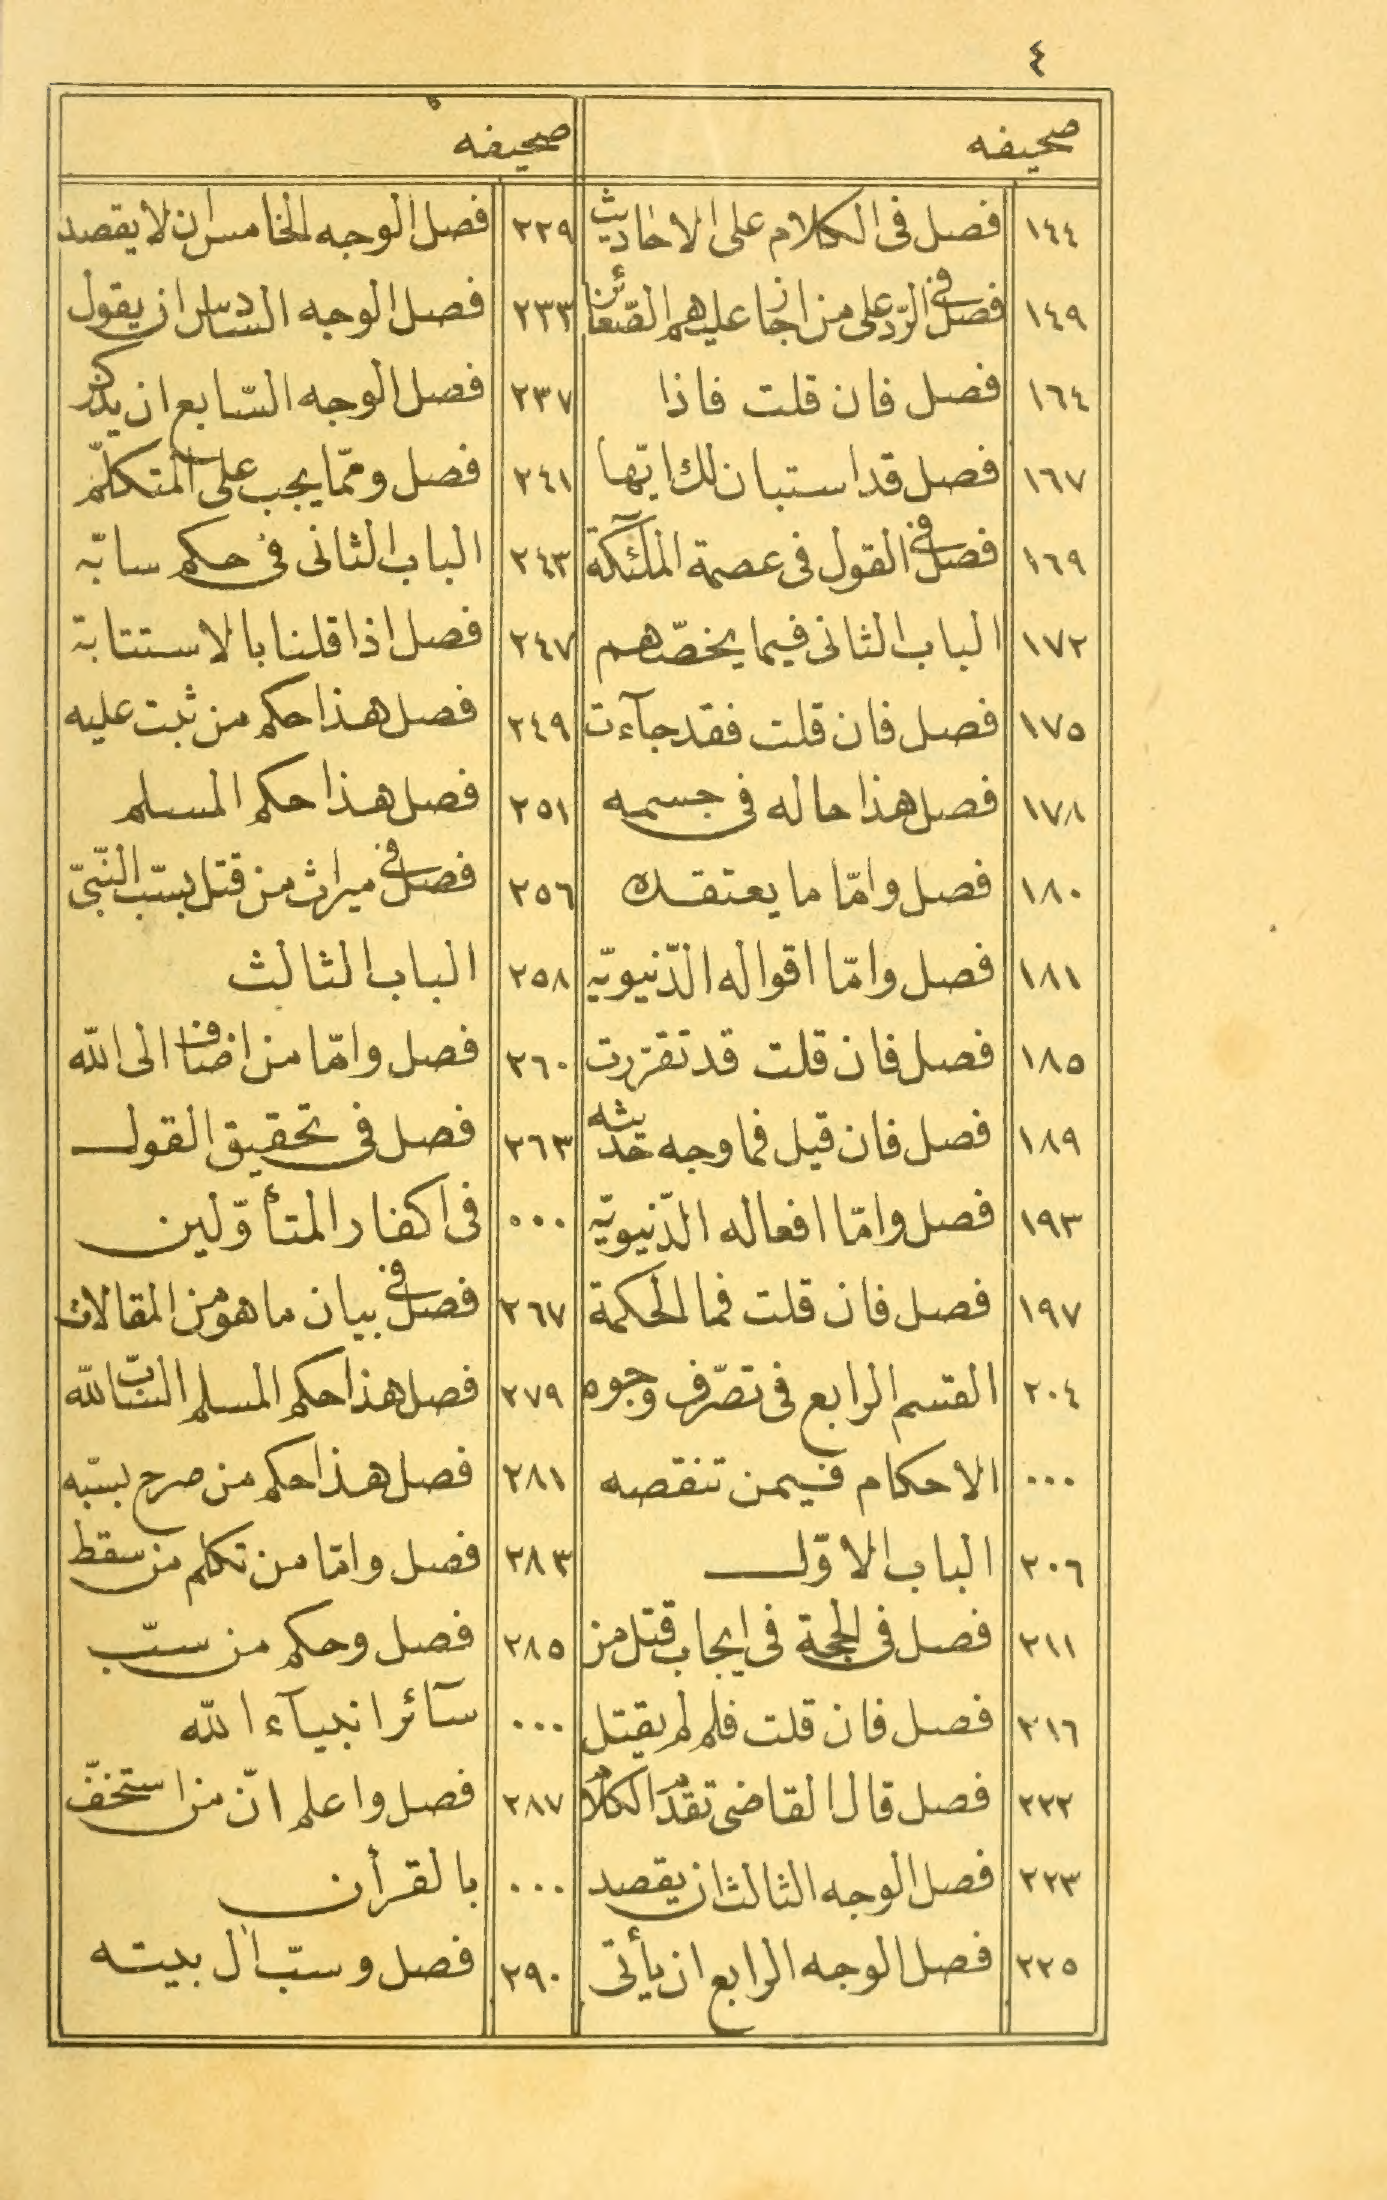 ٤
صحيفه
١٤٤ فصل فى الكلام على الاحاديث
١٤٩ فصل فى الرّد على من اجاز عليهم الصّغائر
١٦٤ فصل فان قلت فاذا
١٦٧ فصل قد استبان لك ايّها
١٦٩ فصل فى القول فى عصمة الملئكة
١٧٢ الباب الثانى فيما يخصّهم
١٧٥ فصل فان قلت فقد جآءت
١٧٨ فصل هذا حاله فى جسمه
١٨٠ فصل وامّا ما يعتقده
١٨١ فصل وامّا اقواله الدّنيويّه
١٨٥ فصل فان قلت قد تقرّرت
١٨٩ فصل فان قيل فما وجه حديثه
١٩٣ فصل وامّا افعاله الدّنيويّه
١٩٧ فصل فان قلت فما الحكمة
٢٠٤ القسم الرابع فى تصّرف وجوه
٠٠٠ الاحكام فيمن تنقصه
٢٠٦ الباب الاوّل
٢١١ فصل فى الحجة فى ايجاب قتل من
٢١٦ فصل فان قلت فلم لم يقتل
٢٢٢ فصل قال القاضى تقدّم الكلام
٢٢٣ فصل الوجه الثالث ان يقصد
٢٢٥ فصل الوجه الرابع ان يأتى
صحيفه
٢٢٩ فصل الوجه الخامس ان لا يقصد
٢٣٣ فصل الوجه السّادس ان يقول
٢٣٧ فصل الوجه السّابع ان يذكر
٢٤١ فصل وممّا يجب على المتكلّم
٢٤٣ الباب الثانى فى حكم سابّه
٢٤٧ فصل اذا قلنا بالاستتابة
٢٤٩ فصل هذا حكم من ثبت عليه
٢٥١ فصل هذا حكم المسلم
٢٥٦ فصل فى ميراث من قتل بسبّ النّبىّ
٢٥٨ الباب الثالث
٢٦٠ فصل وامّا من اضاف الى الله
٢٦٣ فصل فى تحقيق القول
٠٠٠ فى اكفار المتأوّلين
٢٦٧ فصل فى بيان ما هو من المقالات
٢٧٩ فصل هذا حكم المسلم السّابّ لله
٢٨١ فصل هذا حكم من صرح بسبّه
٢٨٣ فصل وامّا من تكلم من سقط
٢٨٥ فصل وحكم من سبّ
٠٠٠ سآئر انبيآء الله
٢٨٧ فصل واعلم انّ من استخفّ
٠٠٠ بالقرأن
٢٩٠ فصل وسبّ ال بيته